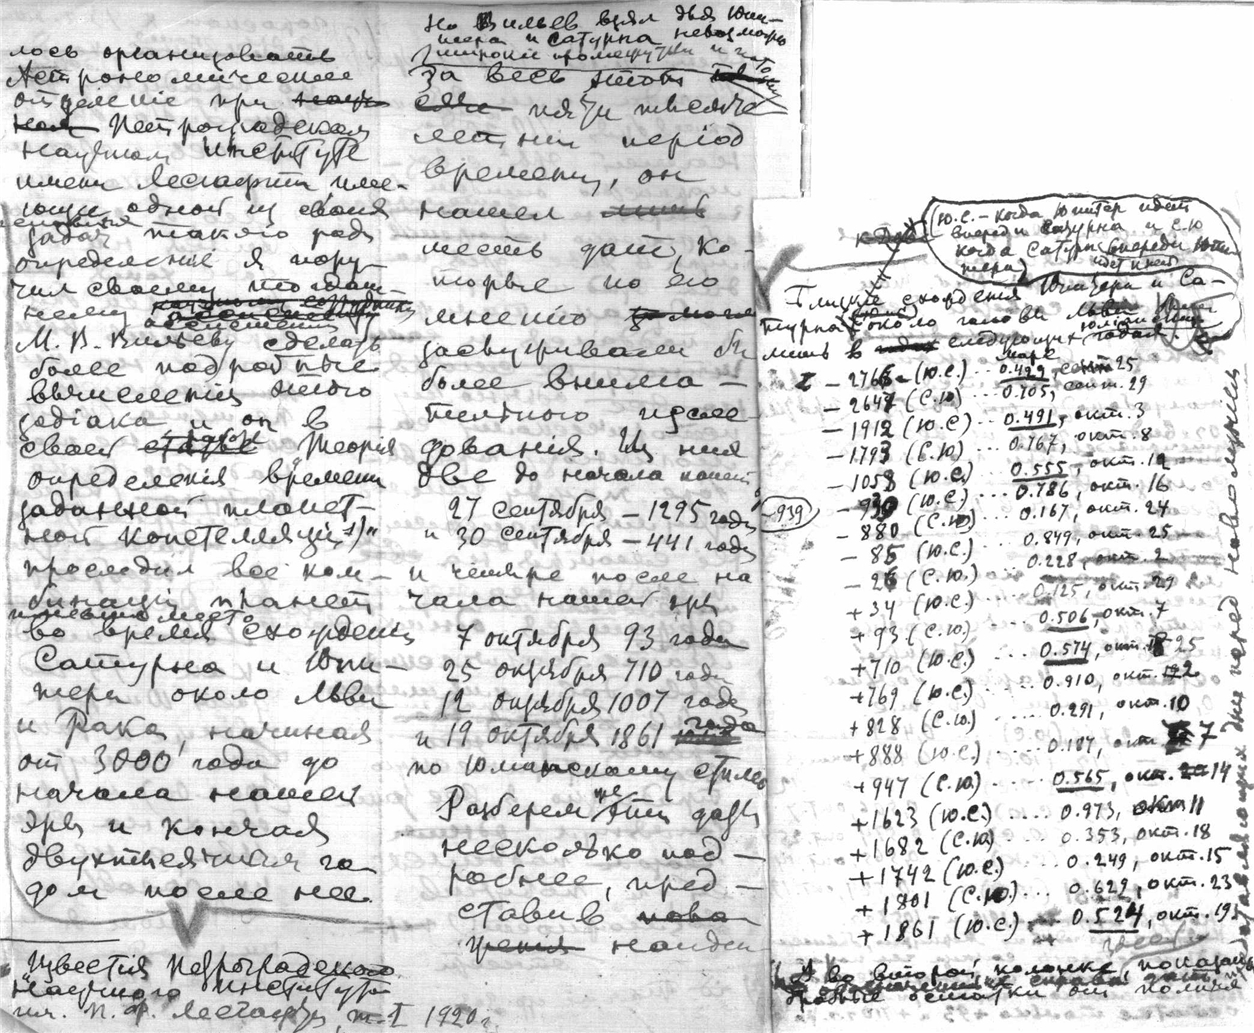 лось организовать
Астрономическое
отделение при
Петроградском
научном Институте
имени Лесгафта имею-
щим одной из своих
задач такого рода
определение я пору-
чил своему тогдаш-
нему
М. А. Вильеву сделать
более подробные
вычисления этого
зодіака и он в
своей Теорія
определенія времени
заданной планет-
ной констелляціи"
проследил все ком-
бинаціи планет
имевшие место
во время схожденій
Сатурна и Юпи-
тера около Льва
и Рака, начиная
от 3000 года до
начала нашей
эры и кончая
двухтысячным го
дом после нее.
Известія Петроградского
Научного Института
им. П. Ф. Лесгафта, т. I 1920 г.
Но Вильев взял для Юпи-
тера и Сатурна
широкие промежутки и
За весь этот
пяти тысяче
летній період
времени, он
нашел
шесть дат, ко-
торые по его
мнению
заслуживали бы
более внима-
тельного иссле
дованія. Из них
две до начала нашей
27 сентября – 1295 года
и 30 сентября – 441 года
и четыре после на
чала нашей эры
7 октября 93 года
25 октября 710 года
12 октября 1007 года
и 19 октября 1861 года
по Юлианскому стилю
Разберем же эти даты
несколько под-
робнее, пред-
ставив
наиди
(Ю.С. – когда Юпитер идет
впереди Сатурна и С.Ю
когда Сатурн впереди Юпи
тера)
идет
схождения Юпитера и Са-
турна около головы Льва
лишь в следующих годах
– 2766 (Ю.С.) 0.429, сент 25
– 2647 (С.Ю) 0.705, сент. 29
– 1912 (Ю.С) 0.491, окт. 3
– 1793 (С.Ю) 0.767, окт. 8
– 1058 (Ю.С) 0.555, окт. 12
– 939 (Ю.С) ... 0.786, окт. 16
– 939
– 880 (С.Ю) ... 0.167, окт. 24
– 85 (Ю.С.) ... 0.849, окт. 25
– 26 (С.Ю.) ... 0.228, окт. 2
+ 34 (Ю.С) ... 0.125, окт. 29
+ 93 (С.Ю.) ... 0.506, окт. 7
+710 (Ю.С) ... 0.574, окт. 25
+769 (Ю.С) ... 0.910, окт. 2
+828 (С.Ю) ... 0.291, окт. 10
+888 (Ю.С.) ... 0.187, окт. 7
+947 (С.Ю) ... 0.565, окт. 14
+1623 (Ю.С.) ... 0.973, окт 11
+1682 (С.Ю) ... 0.353, окт. 18
+1742 (Ю.С.) ... 0.249, окт. 15
+1801 (С.Ю.) ... 0.629, окт. 23
+1861 (Ю.С.) ... 0.524, окт. 19
А во второй колонке, показаны
дробные остатки от
дни перед новолуния